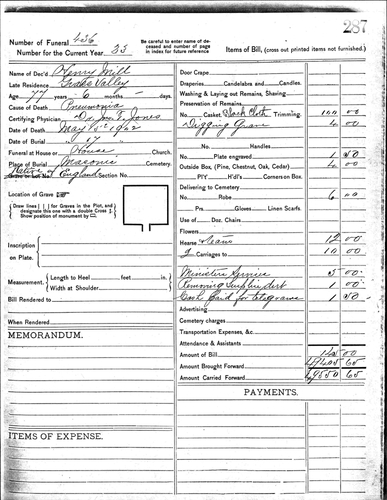 287
Number of Funeral 436
Number for the Current Year 33
Be careful to enter name of deceased and number of page in index for future reference
Items of Bill, (cross out printed items not furnished.)
Name of Dec'd Henry Mill
Late Residence Grass Valley
Age 77 years 6 months days.
Cause of Death Pneumonia
Certifying Physician Dr. Jones
Date of Death May 5th 1902
Date of Burial " 7th "
Funeral at House or House Church.
Place of Burial Masonic Cemetery.
Native of England Section No.
Location of Grave
Draw lines | | for Graves in the Plot, and designate this one with a double Cross
Show position of monument by
Inscription on Plate.
Measurement. Length to Heel feet in.
Width at Shoulder "
Bill Rendered to
When Rendered
MEMORANDUM.
ITEMS OF EXPENSE.
Door Crape
Draperies Candelabra and Candles.
Washing & Laying out Remains, Shaving
Preservation of Remains
No. Casket Black Cloth Trimming. 100 00
Digging Grave 4 00
No. Handles
Plate engraved 1 50
Outside Box, (Pine, Chestnut, Oak, Cedar) 4 00
P/Y H'd's Corners on Box.
Delivering to Cemetery
No. Robe 6 00
Prs. Gloves Linen Scarfs.
Use of Doz. Chairs
Flowers
Hearse 12 00
2 Carriages to 10 00
Ministers Service 5 00
Removing Surplus dirt 1 00
Cash paid for telegrams 1 50
Advertising
Cemetery charges
Transportation Expenses, &c.
Attendance & Assistants
Amount of Bill 145 00
Amount Brought Forward 49405 65
Amount Carried Forward 49550 65
PAYMENTS.